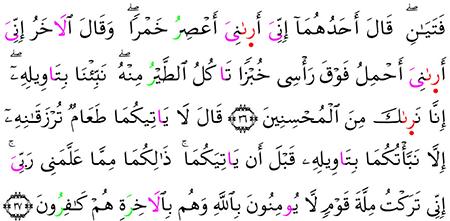 فَتَيَٰنِۖ قَالَ أَحَدُهُمَآ إِنِّىَ أَر۪ىٰنِىَ أَعْصِرُ خَمْرٗاۖ وَقَالَ ٱلَاخَرُ إِنِّىَ
أَر۪ىٰنِىَ أَحْمِلُ فَوْقَ رَأْسِى خُبْزٗا تَاكُلُ ٱلطَّيْرُ مِنْهُۖ نَبِّئْنَا بِتَاوِيلِهِۦٓۖ
إِنَّا نَر۪ىٰكَ مِنَ ٱلْمُحْسِنِينَ ۝٣٦ قَالَ لَا يَاتِيكُمَا طَعَامٞ تُرْزَقَٰنِهِۦٓ
إِلَّا نَبَّأْتُكُمَا بِتَاوِيلِهِۦ قَبْلَ أَن يَاتِيَكُمَاۚ ذَٰلِكُمَا مِمَّا عَلَّمَنِى رَبِّىَۚ
إِنِّى تَرَكْتُ مِلَّةَ قَوْمٖ لَّا يُومِنُونَ بِٱللَّهِ وَهُم بِٱلَاخِرَةِ هُمْ كَٰفِرُونَ ۝٣٧